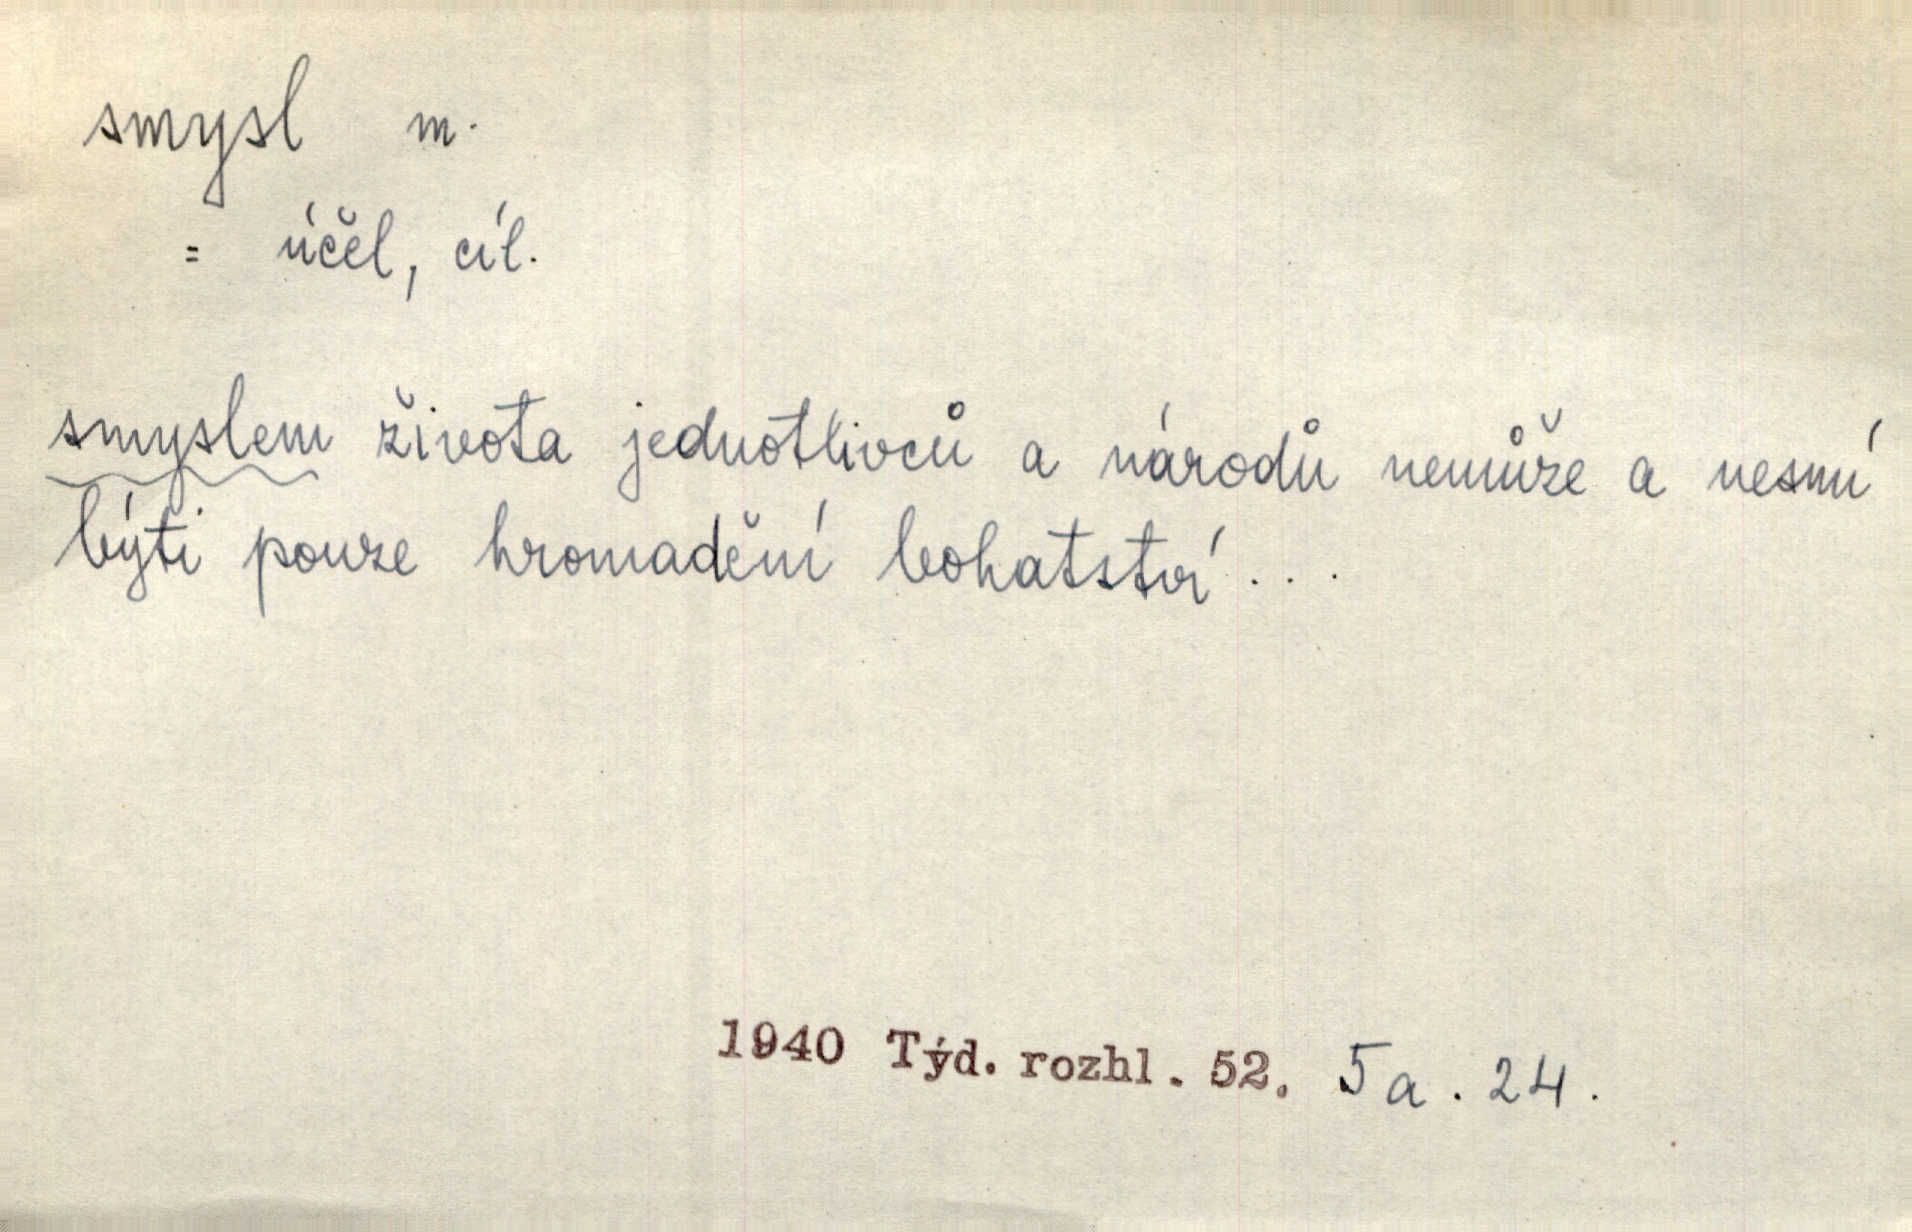 smysl m.
= účel, cíl.
smyslem života jednotlivců a národů nemůže a nesmí
býti pouze hromadění bohatství...
1940 Týd. rozhl. 52. 5a. 24.